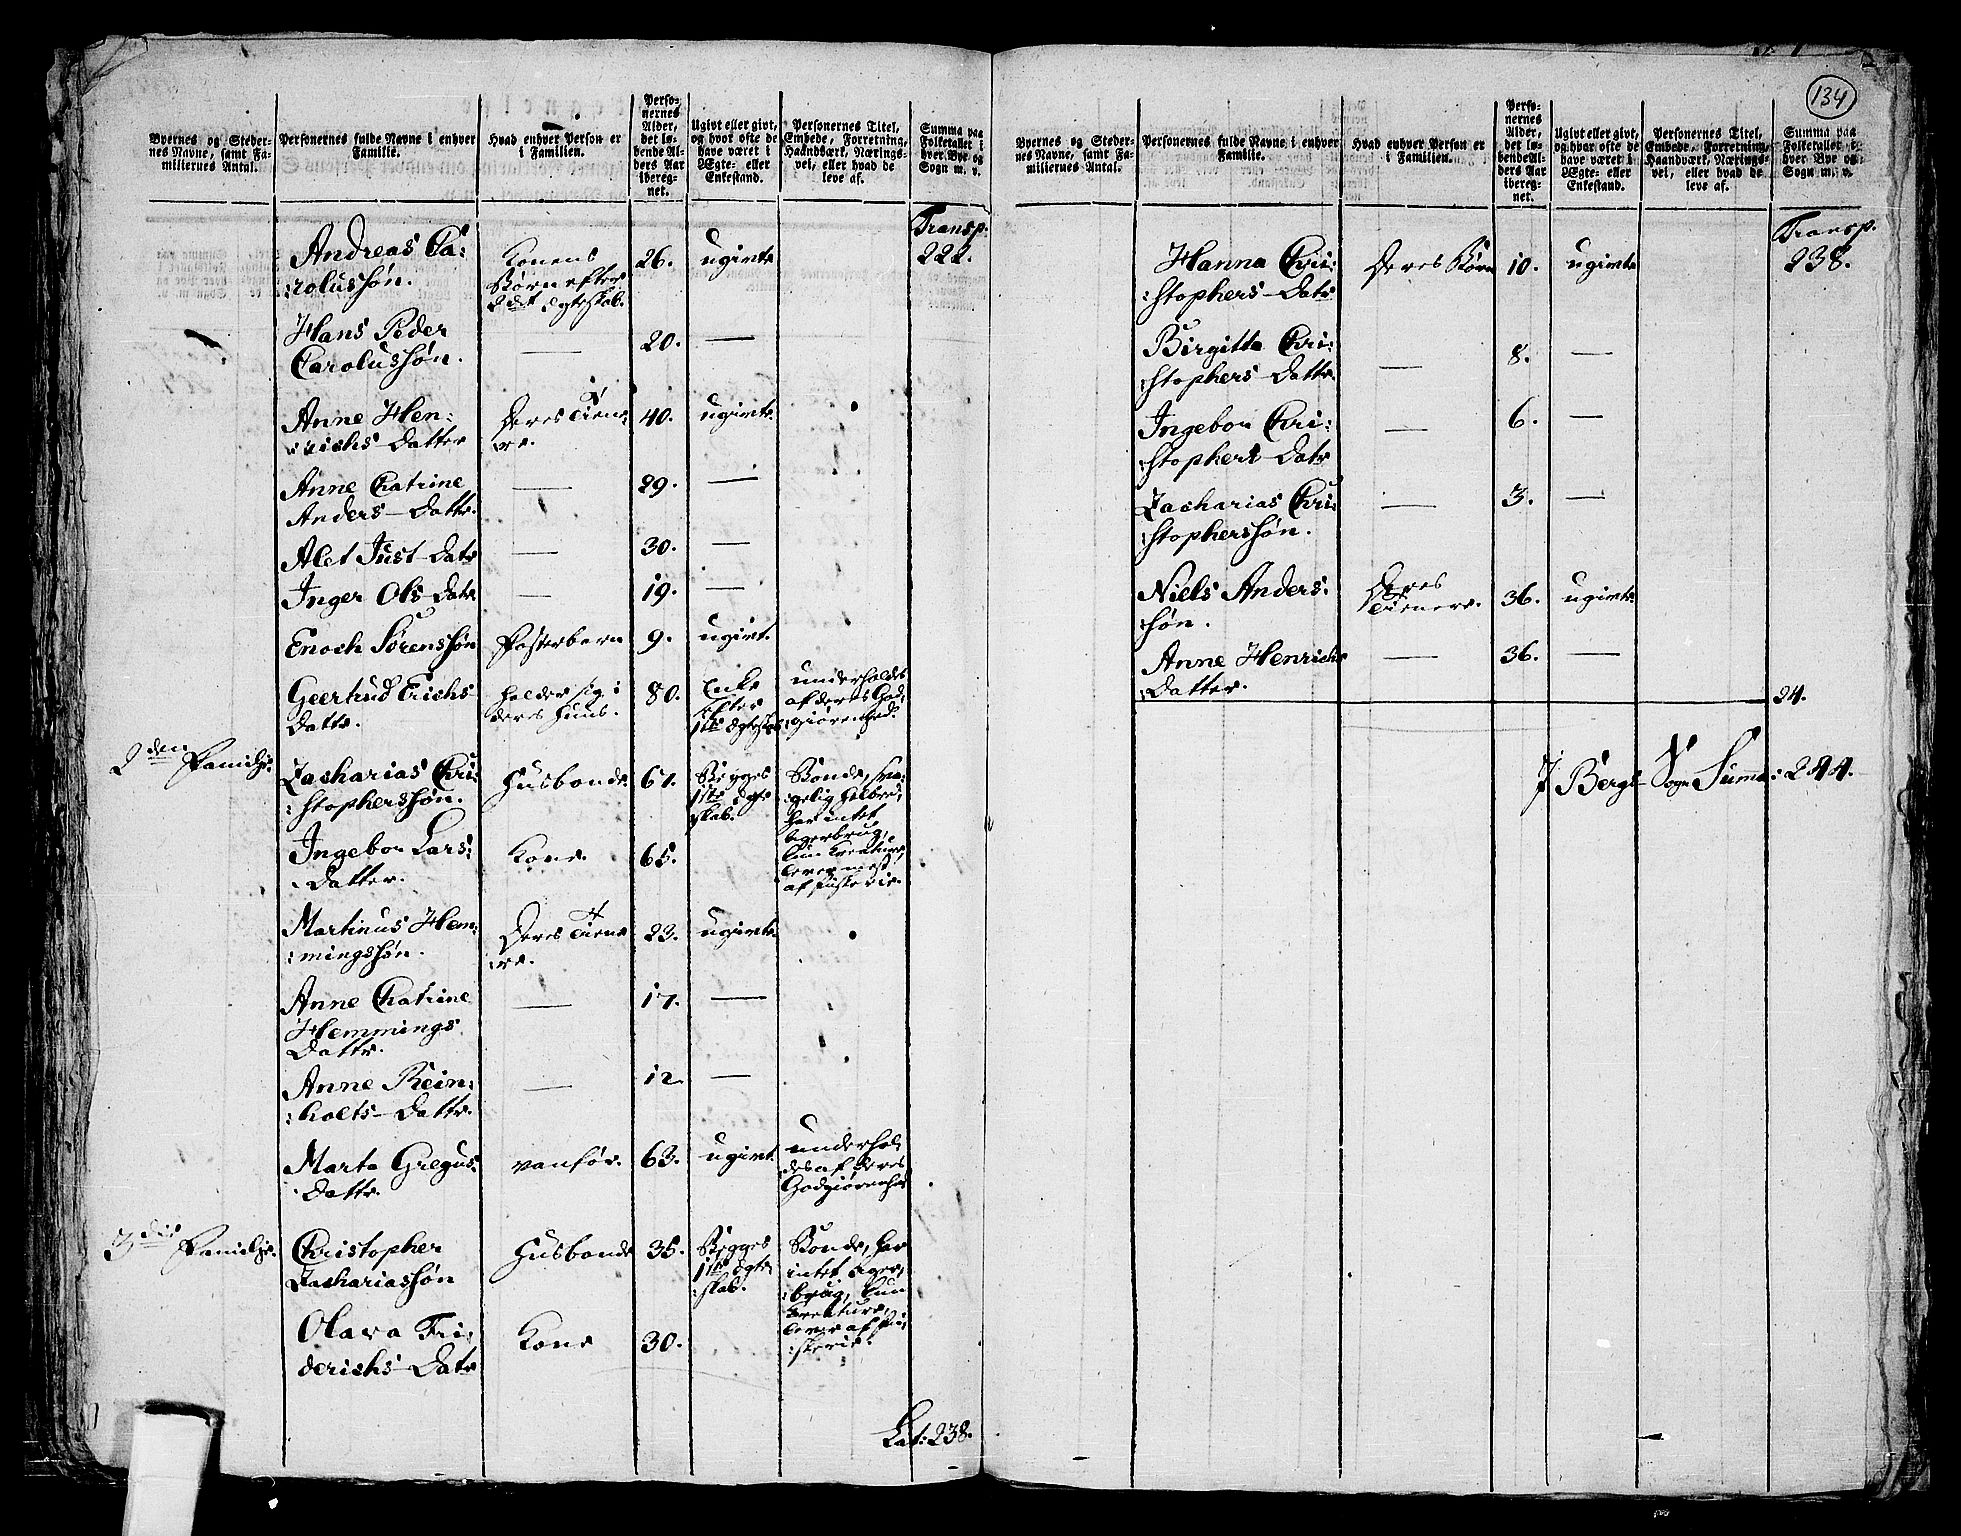 134
Byernes og Steder-
nes Navne, samt Fa-
miliernes Antal.
Personernes fulde Navne i enhver
Familie.
Hvad enhver Person er
i Familien.
Perso-
nernes
Alder,
det lø-
bende Al-
ders Aar
iberegnet.
Ugivt eller givt,
og hvor ofte de
have været i
Ægte- eller
Enkestand.
Personernes Titel,
Embede, Forretning,
Haandværk, Nærings-
vei, eller hvad de
leve af.
Summa paa
Folketallet i
hver Bye og
Sogn m. v.
Transp:
222.
Andreas Ca:
:rolussøn.
Konens
Børn efter
2det Egteskab.
26.
ugivt
Hans Peder
Carolussøn.
—
20.
—
Anne Hen:
:richs Datter
Deres Tiene:
:re.
40.
ugivte
Anne Catrine
Anders-Dattr.
—
29.
—
Alet Just-Datr
—
30.
—
Inger Ols-Datr
—
19.
—
Enoch Sørenssøn
Fosterbarn
9.
ugivt.
Geertrud Erichs
Dattr.
holder sig i
deres Huus.
80.
Enke
efter
1ste Egteskab
underholdes
af deres God:
:giørenhed.
2den Familje.
Zacharias Chri:
:stopherssøn.
Husbonde
67.
Begges
1ste Egte
:skab.
Bonde, sva:
:gelig helbred,
har intet
Agerbrug,
kun Kreature,
lever mest
af fiskerie.
Ingebor Lars:
Datter.
Kone.
65.
Martinus Hem:
:mingssøn.
Deres Tiene
:re.
23.
ugivte.
Anne Catrine
Hemmings
Dattr.
—
17.
—
Anne Rein:
:holts-Dattr.
—
12.
—
Marta Gregus:
Dattr.
vanfør.
63.
ugivt.
underhol:
:des af deres
Godgiørenhed
3die Familje.
Christopher
Zachariassøn
Husbonde
35.
Begges
1ste Egte
:skab.
Bonde, har
intet Ager:
:brug, kun
Kreature,
lever af fi:
:skerie.
Olava Fri:
:derichs-Datr
Kone
30.
Lat: 238.
Byernes og Steder-
nes Navne, samt Fa-
miliernes Antal.
Personernes fulde Navne i enhver
Familie.
Hvad enhver Person er
i Familien.
Perso-
nernes
Alder,
det lø-
bende Al-
ders Aar
iberegnet.
Ugivt eller givt,
og hvor ofte de
have været i
Ægte- eller
Enkestand.
Personernes Titel,
Embede, Forretning,
Haandværk, Nærings-
vei, eller hvad de
leve af.
Summa paa
Folketallet i
hver Bye og
Sogn m. v.
Transp.
238.
Hanna Chri:
:stophers-Datr
Deres Børn
10.
ugivte
Birgitta Chri:
:stophers-Dattr.
—
8.
—
Ingebor Chri:
:stophers-Datr
—
6.
—
Zacharias Chri:
:stopherssøn.
—
3.
—
Niels Anders:
:søn.
Deres
Tienere.
36.
ugivte
Anne Henrichs
Datter.
—
36.
—
24.
I Bergs-Sogn Summa: 244.